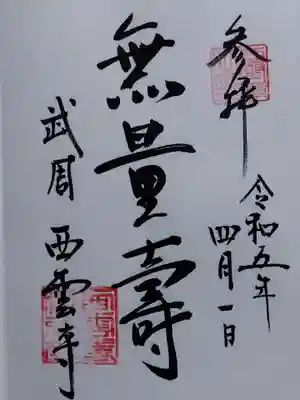 参拝
令和五年
四月一日
無量壽
武周 西雲寺